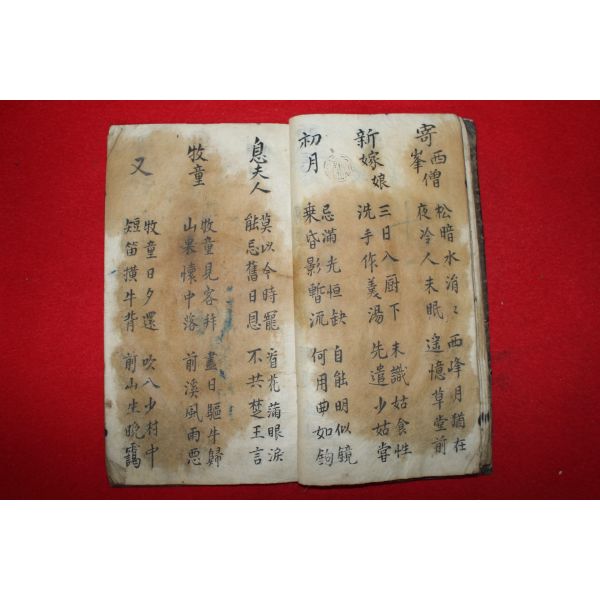 寄西峯僧
松暗水涓〻 西峰月猶在
夜冷人未眠 遙憶草堂前
新嫁娘
三日入厨下 未識姑食性
洗手作羹湯 先遣少姑嘗
初月
忌滿光恒缺 自能明似鏡
乗昏影暫流 何用曲如鉤
息夫人
莫以今時罷 看花滿眼淚
能忌舊日恩 不共楚王言
牧童
牧童見客拜 盡日驅牛歸
山果懷中落 前溪風雨惡
又
牧童日夕還 吹入少村中
短笛橫牛背 前山生晚靄